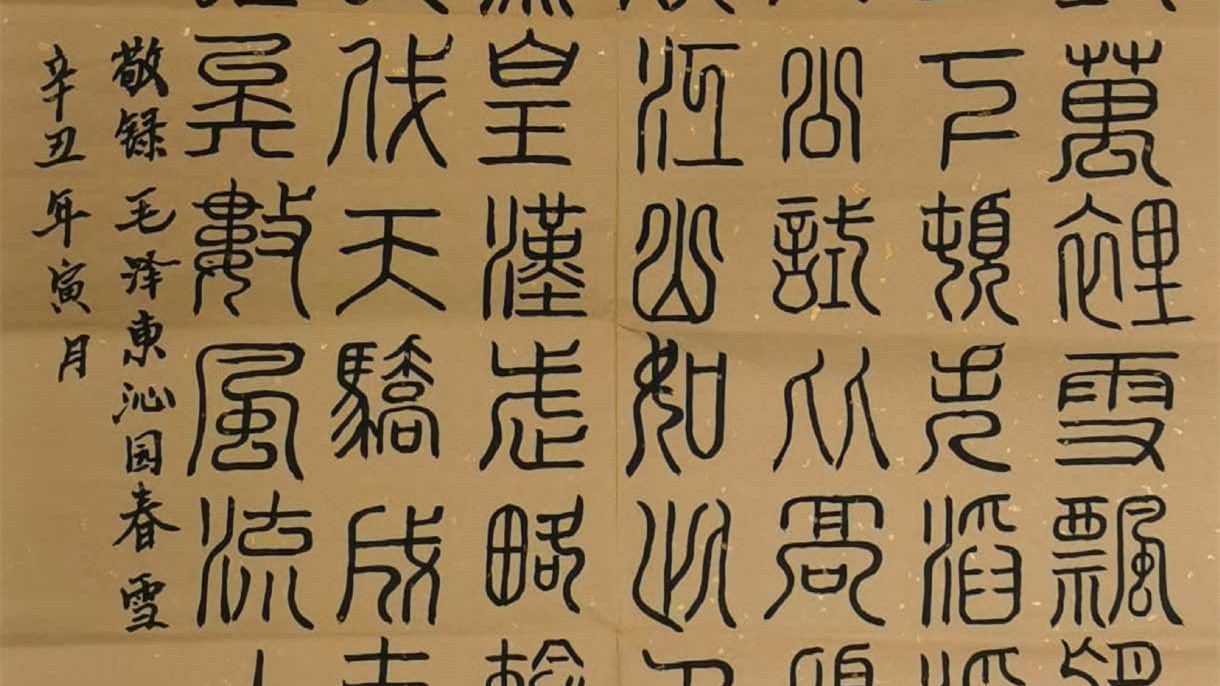 萬裡雪飄
下頓失滔
公試比高
江山如此
皇漢武略
代天驕成
矣數風流
敬録毛泽東沁园春雪
辛丑年寅月